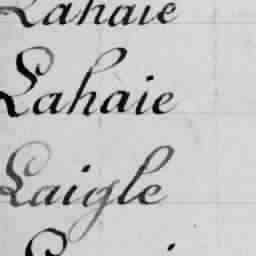 Lahaie
Lahaie
Laigle